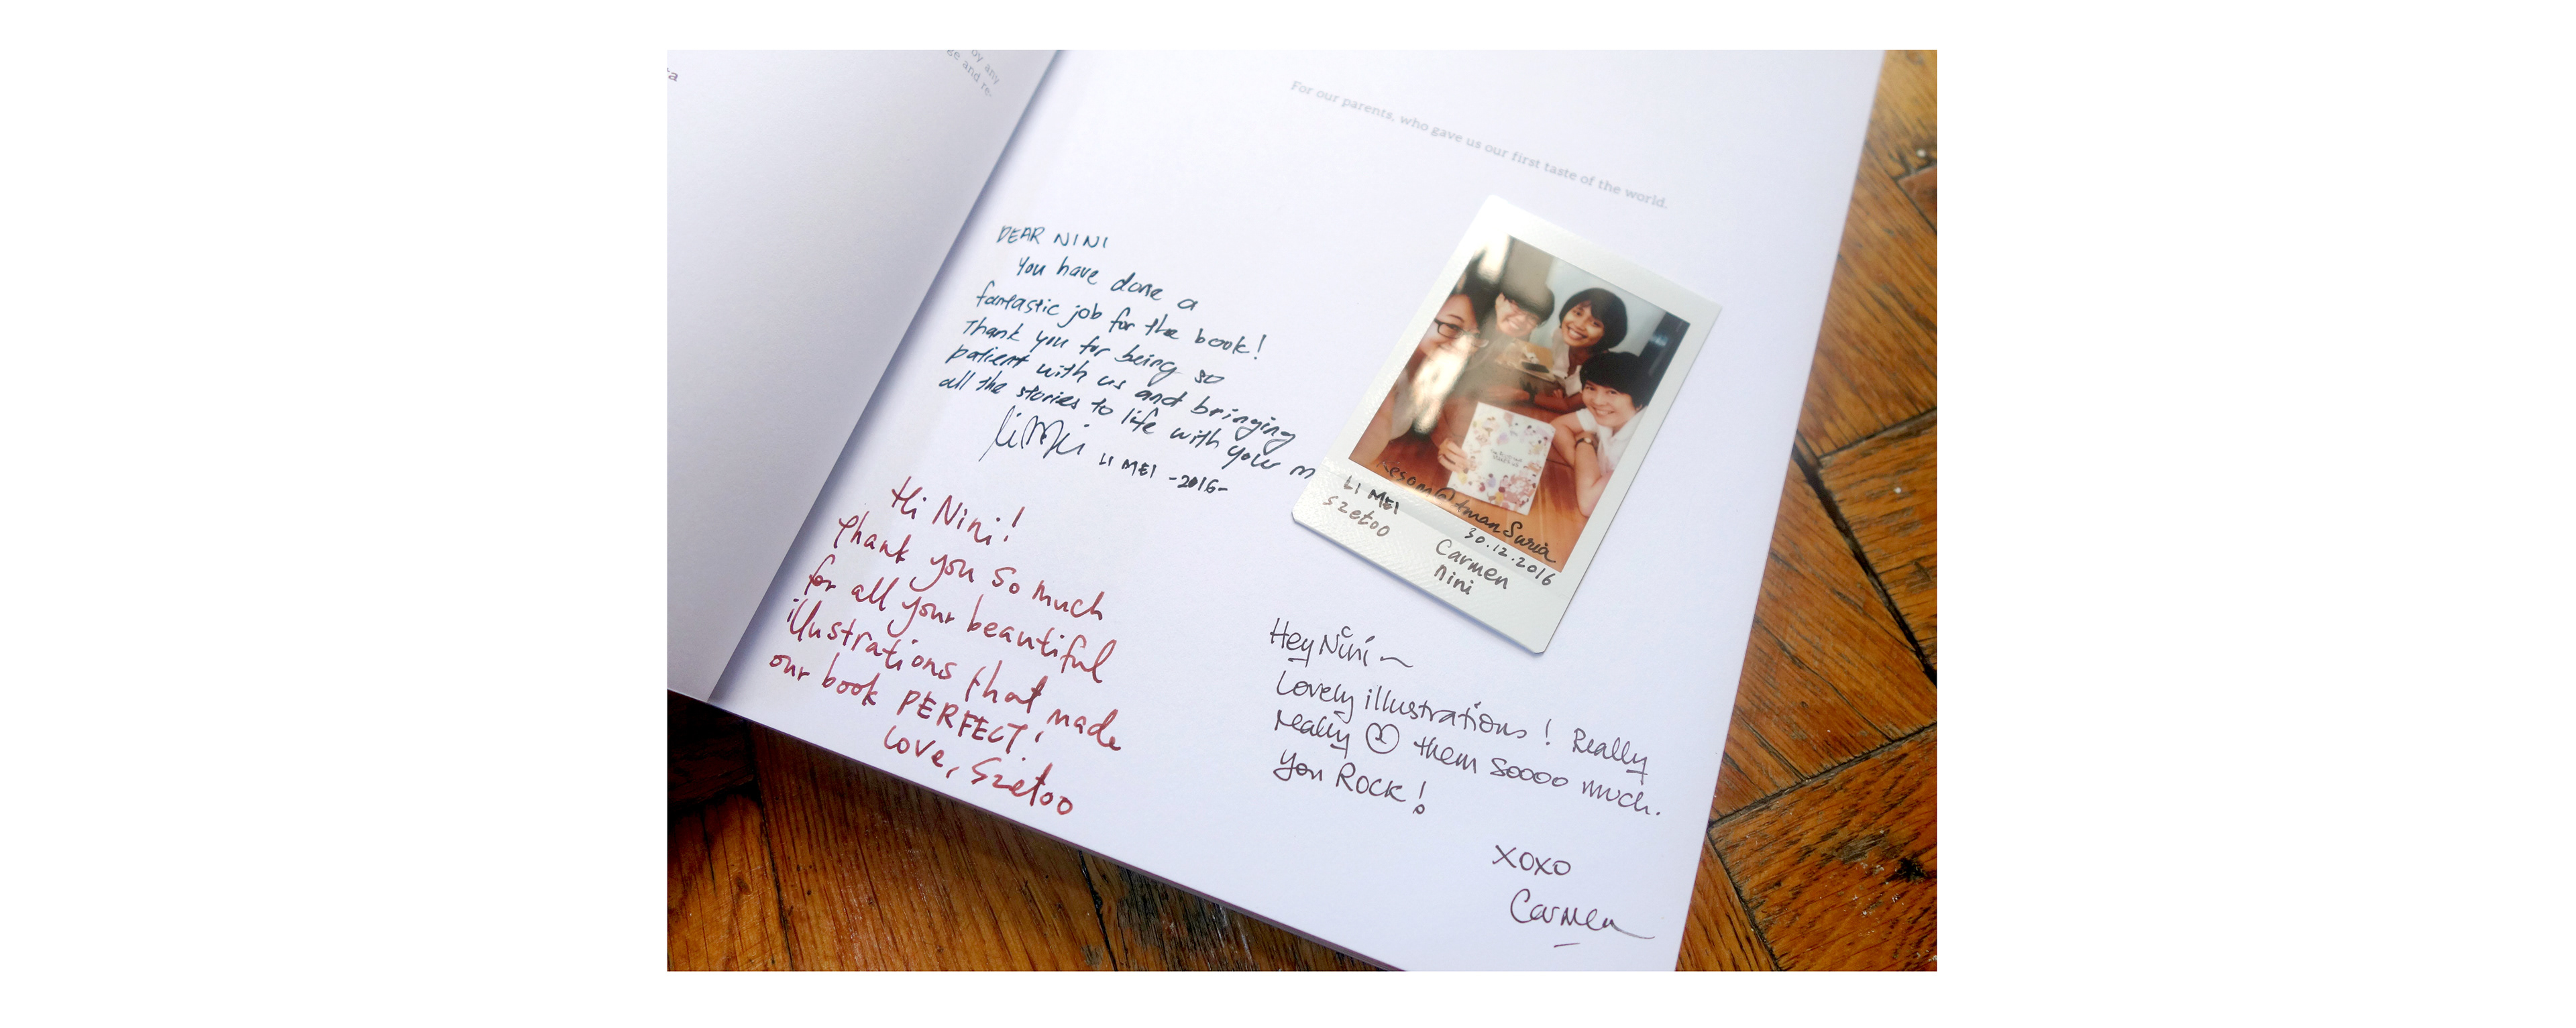 by any
ge and re-
For our parents, who gave us our first taste of the world.
DEAR NINI
You have done a
fantastic job for the book!
Thank you for being so
patient with us and bringing
all the stories to life with your
Li Mei LI MEI -2016-
Hi Nini!
Thank you so much
for all your beautiful
illustrations that made
our book PERFECT!
Love, Szetoo
LI MEI
Szetoo
30.12.2016
Carmen
Nini
Hey Nini ~
Lovely illustrations! Really
really them soooo much.
You Rock!
XOXO
Carmen